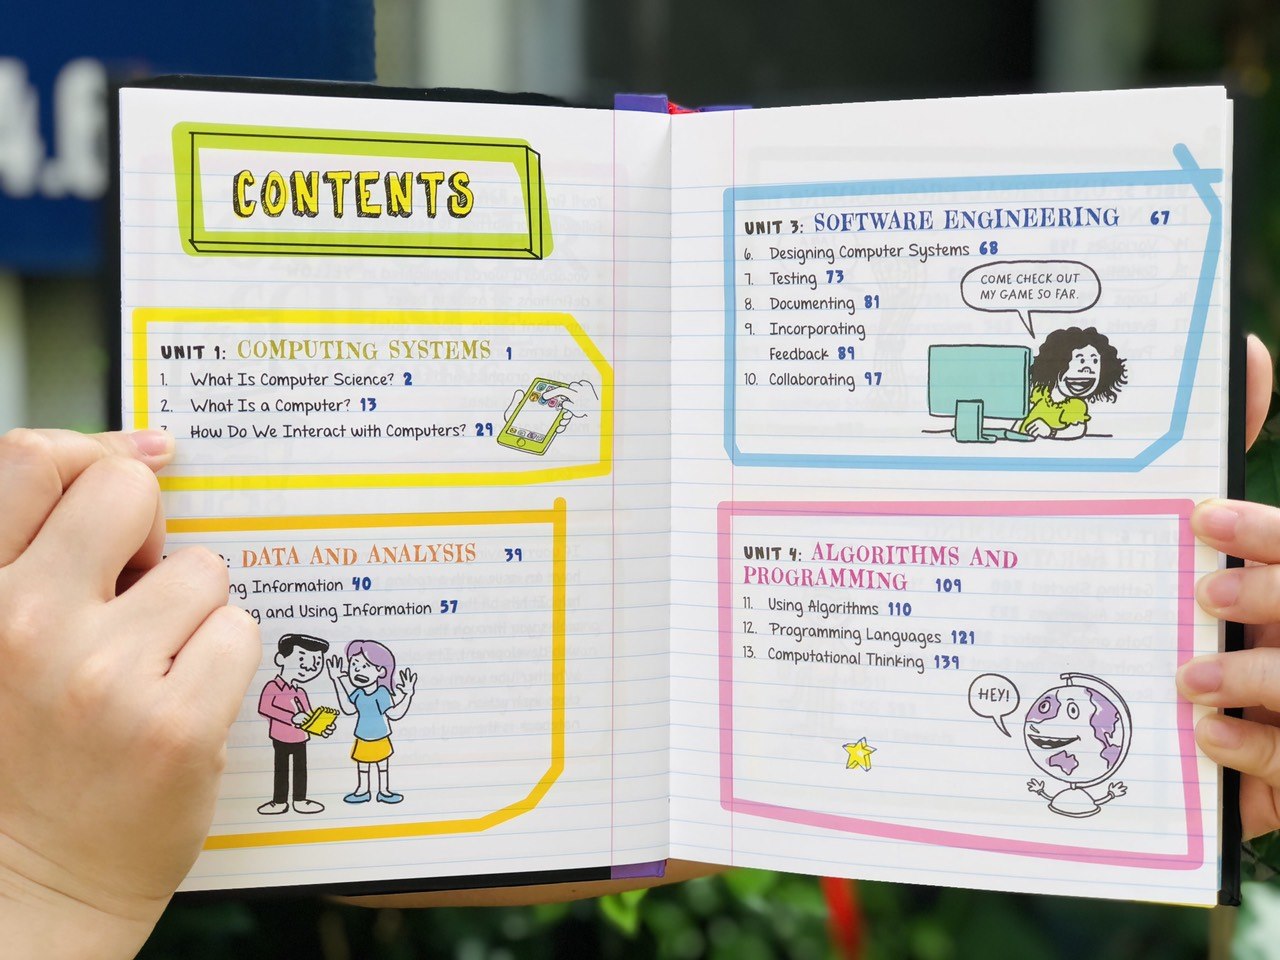 4.6
CONTENTS
UNIT 1: COMPUTING SYSTEMS 1
1. What Is Computer Science? 2
2. What Is a Computer? 13
How Do We Interact with Computers? 29
DATA AND ANALYSIS 39
ng Information 40
g and Using Information 57
UNIT 3: SOFTWARE ENGINEERING 67
6. Designing Computer Systems 68
7. Testing 73
8. Documenting 81
9. Incorporating
Feedback 89
10. Collaborating 97
COME CHECK OUT
MY GAME SO FAR.
UNIT 4: ALGORITHMS AND
PROGRAMMING 109
11. Using Algorithms 110
12. Programming Languages 121
13. Computational Thinking 139
HEY!